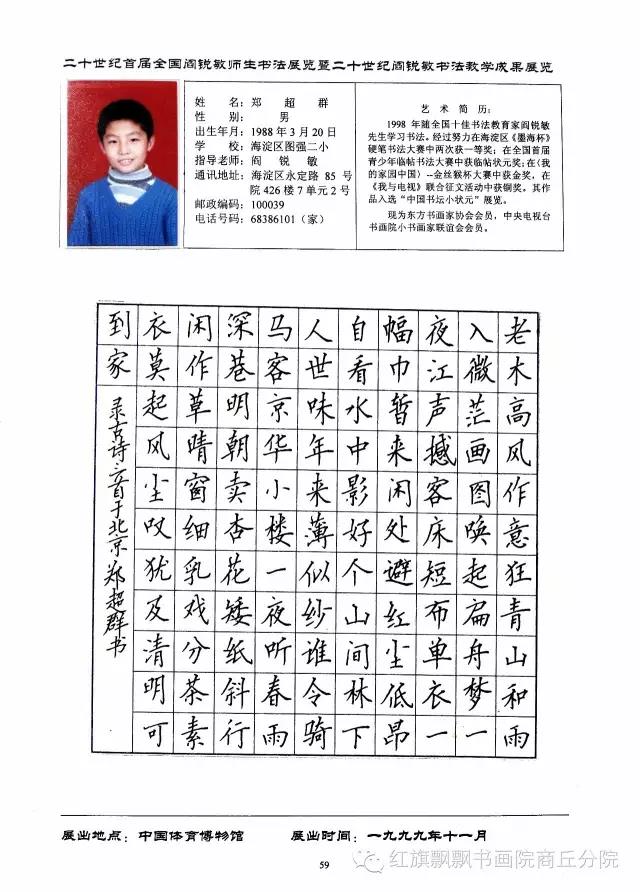 二十世纪首届全国阎锐敏师生书法展览暨二十世纪阎锐敏书法教学成果展览
姓 名：郑 超 群
性 别： 男
出生年月：1988 年 3 月 20 日
学 校：海淀区图强二小
指导老师：阎 锐 敏
通讯地址：海淀区永定路 85 号
院 426 楼 7 单元 2 号
邮政编码：100039
电话号码：68386101（家）
艺 术 简 历：
1998 年随全国十佳书法教育家阎锐敏
先生学习书法。经过努力在海淀区《墨海杯》
硬笔书法大赛中两次获一等奖；在全国首届
青少年临帖书法大赛中获临帖状元奖；在《我
的家园中国》--金丝猴杯大赛中获金奖，在
《我与电视》联合征文活动中获铜奖。其作
品入选“中国书坛小状元”展览。
现为东方书画家协会会员，中央电视台
书画院小书画家联谊会会员。
老木高风作意狂青山和雨
入微茫画图唤起扁舟梦一
夜江声撼客床短布单衣一
幅巾暂来闲处避红尘低昂
自看水中影好个山间林下
人世味年来薄似纱谁令骑
马客京华小楼一夜听春雨
深巷明朝卖杏花矮纸斜行
闲作草晴窗细乳戏分茶素
衣莫起风尘叹犹及清明可
到家
录古诗三首于北京郑超群书
展出地点：中国体育博物馆 展出时间：一九九九年十一月
59
红旗飘飘书画院商丘分院